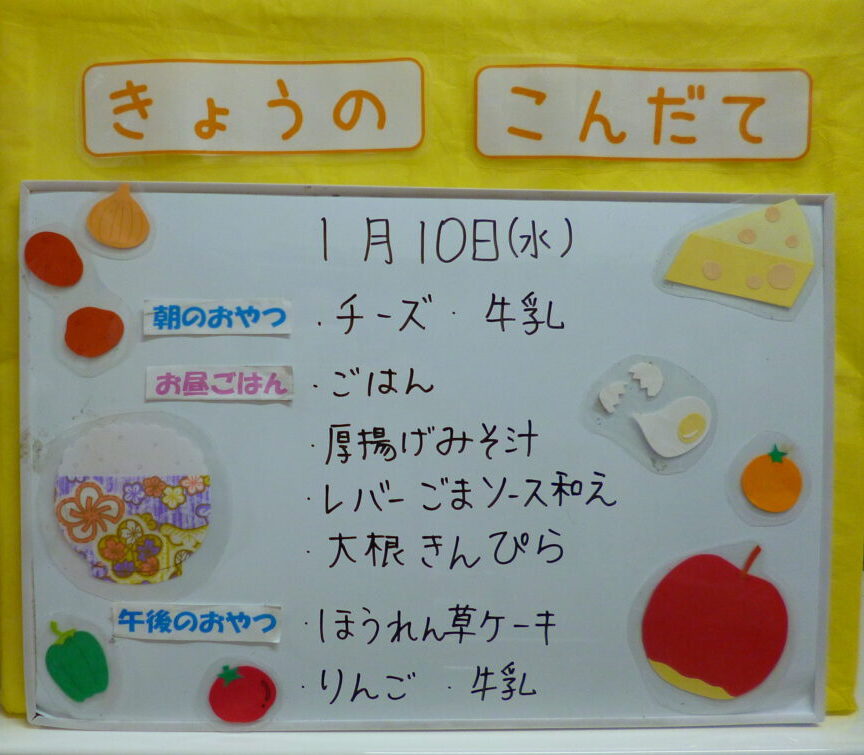 きょうの こんだて
1月10日(水)
朝のおやつ ・チーズ ・ 牛乳
お昼ごはん ・ごはん
・厚揚げみそ汁
・レバーごまソース和え
・大根きんぴら
午後のおやつ ・ほうれん草ケーキ
・りんご ・牛乳